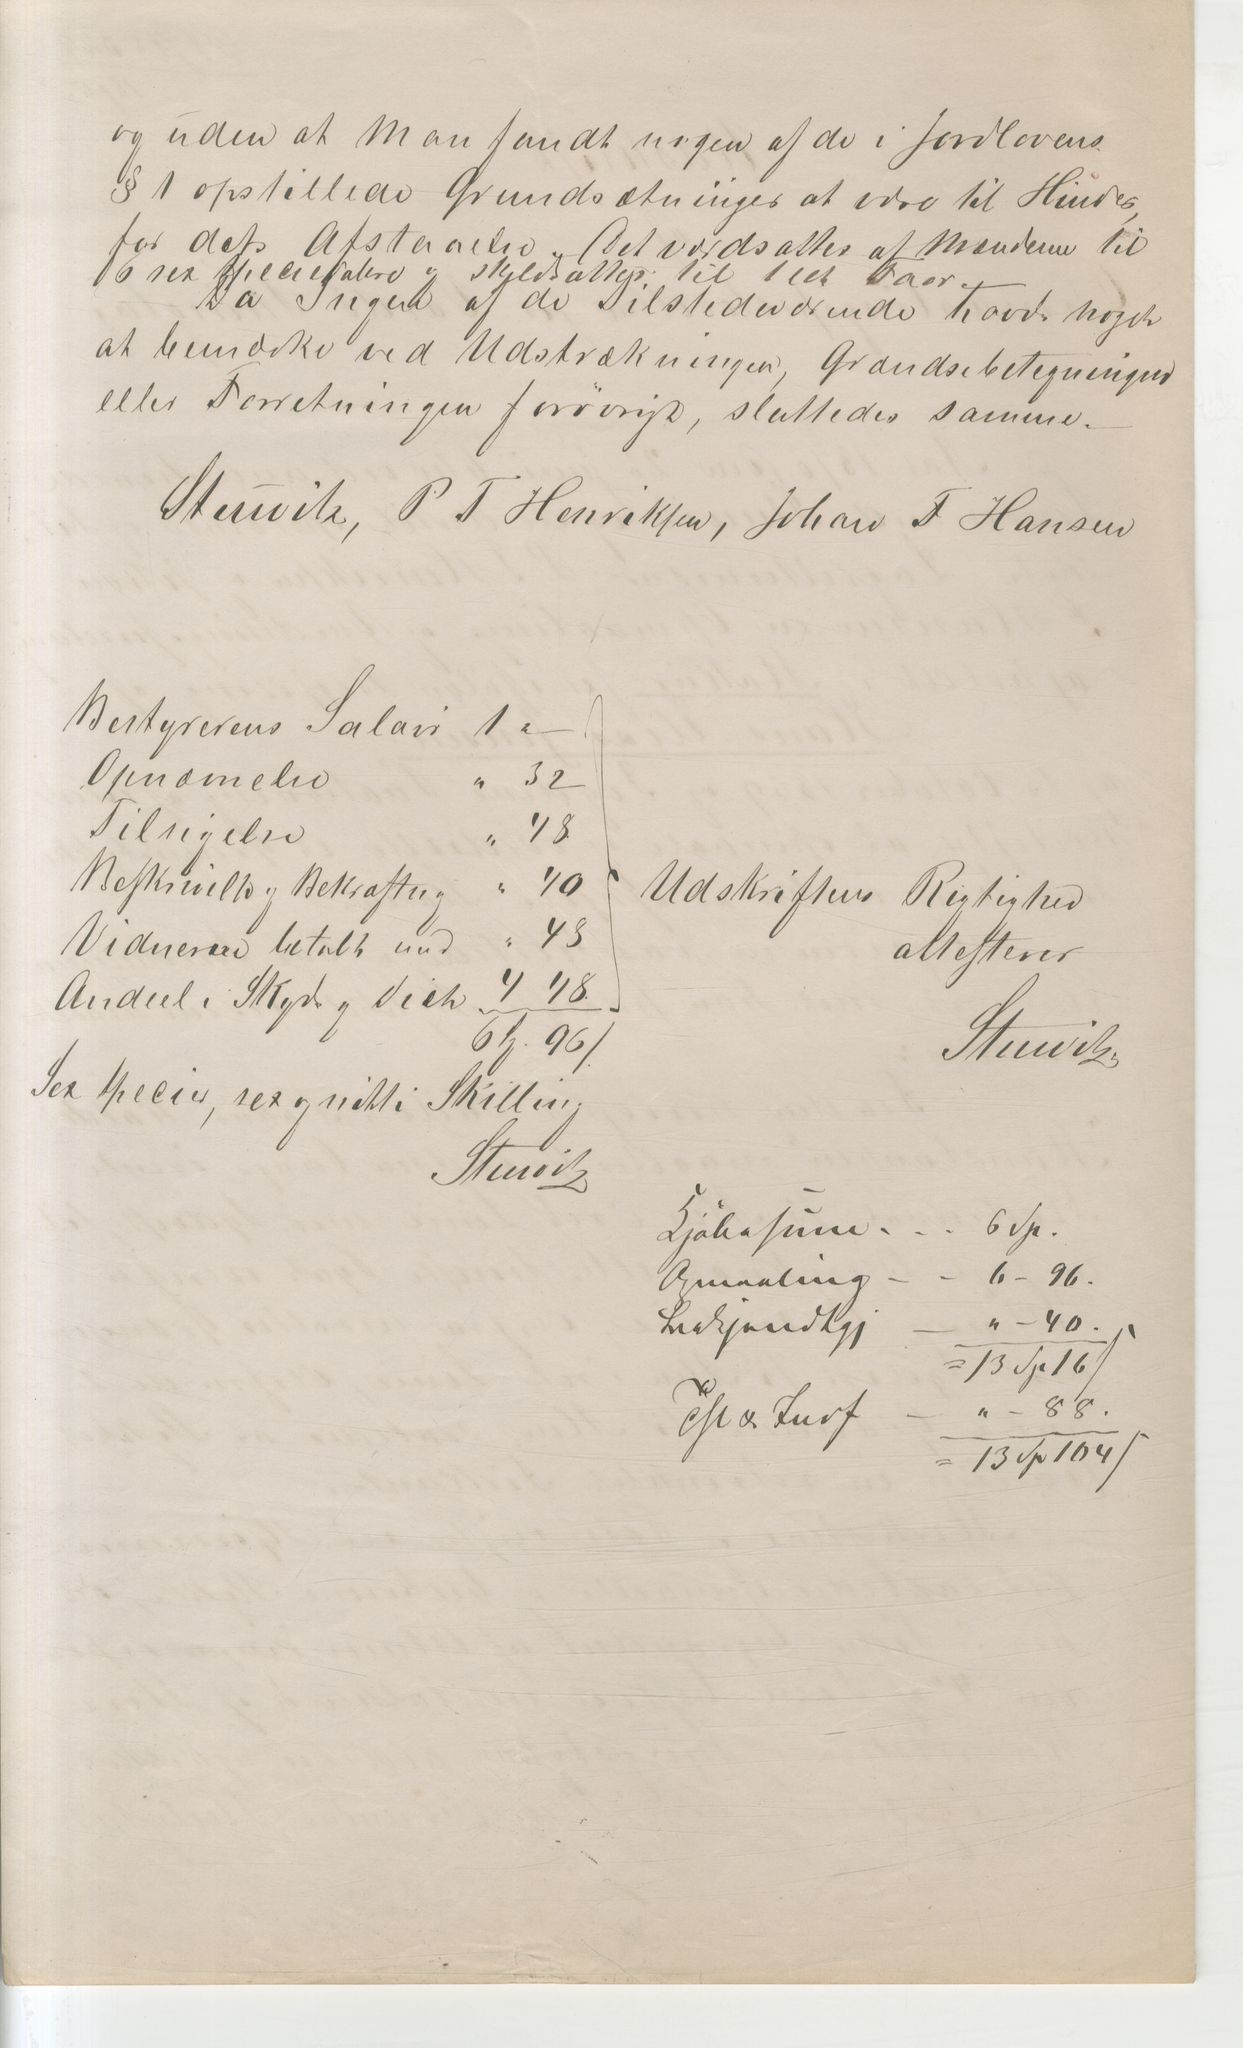 og uden at Man fandt nogen af de i Jordlovens
§ 1 opstillede Grundsætninger at være til Hinder,
for dets Afstaaelse. Det værdsattes af Mændene til
6 sex Speciedalere og skyldsattes til
Da Ingen af de Tilstedeværende havde noget
at bemærke ved Udstrækningen, Grændsebetegningen
eller Forretningen forøvrigt, sluttedes samme.
Stuwitz, P T Henriksen, Johan F Hansen
Bestyrerens Salair 1 "
Opnævnelse " 32
Tilsigelse " 48
Beskrivelse og Bekræftng " 40
Vidnerne betalt med " 48
Andeel i Skyds og Diæt 4 48
6 96/
Sex Specier, sex og nitti Skilling
Stuwitz
Udskriftens Rigtighed
attesterer
Stuwitz
Kjöbesum - - - 6 Sp.
Opmaaling - - 6 - 96.
Bekjendtgj - " - 40.
= 13 Sp 16/
- " - 88.
= 13 Sp 104/